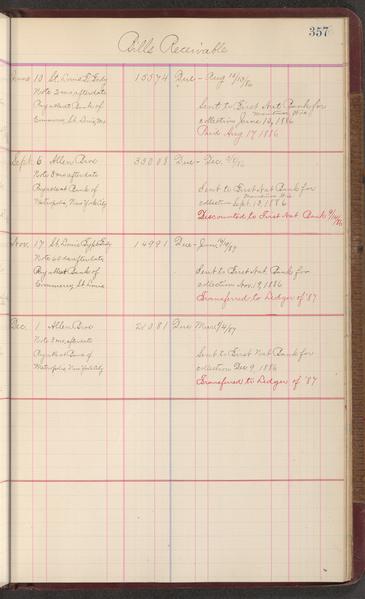 357
Bills Receivable
June 13 St. Louis T. Fndy 155 74 Due - Aug 12/15/86
Note 2 mos after date
Pay at Bank of Sent to First Nat Bank for
Commerce, St. Louis, Mo Manitowoc Wis
collection June 13, 1886
Paid Aug 17 1886
Sept. 6 Allen Bros 350 08 Due - Dec. 6/9/86
Note 3 mos after date
Payable at Bank of Sent to First Nat Bank for
Metropolis, New York City Manitowoc Wis
collection Sept. 13, 1886
Discounted to First Nat Bank
Nov. 17 St. Louis Type Fndy 149 91 Due - Jan 16/19/87
Note 60 ds after date
Pay at Bank of Sent to First Nat Bank for
Commerce, St. Louis collection Nov. 19, 1886
Transferred to Ledger of '87
Dec. 1 Allen Bros 210 81 Due Mar 1/4/87
Note 3 mos after date
Pay at Bank of Sent to First Nat Bank for
Metropolis, New York City collection Dec 9, 1886
Transferred to Ledger of '87